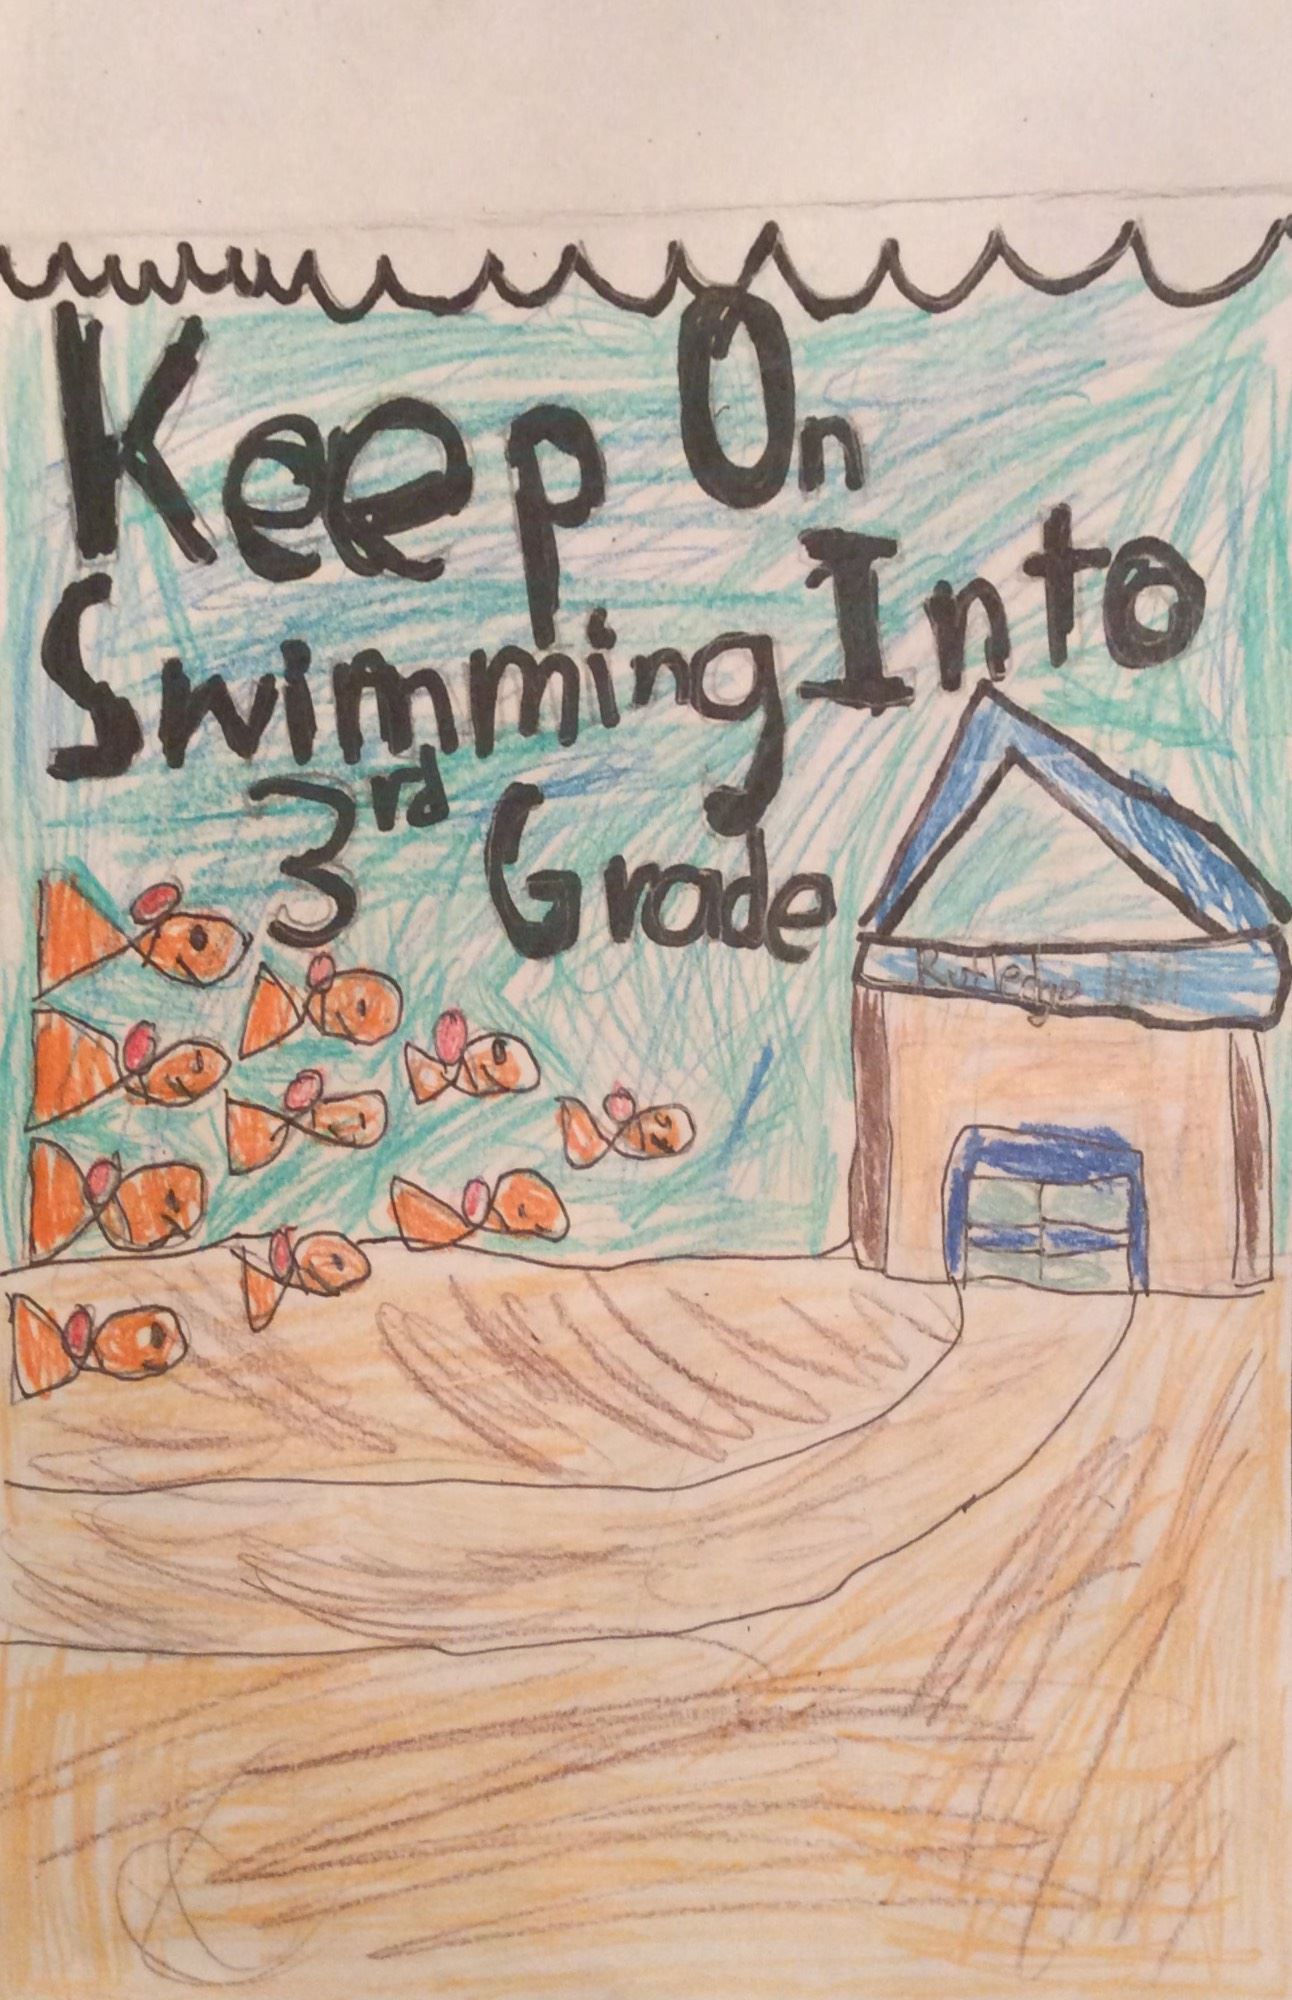 Keep On
Swimming Into
3rd Grade
Rutledge Hall